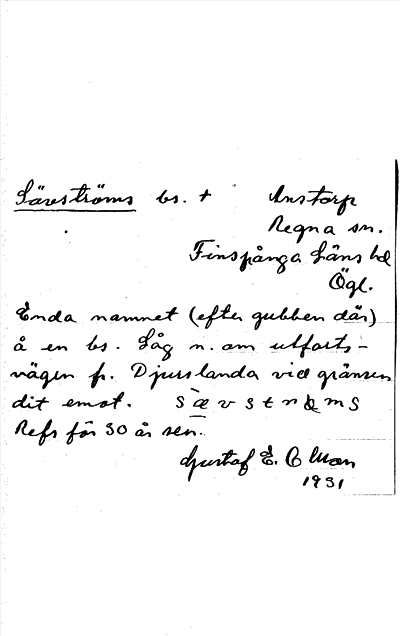 Säveströms bs. † Anstorp
Regna sn.
Finspånga läns hd
Ögl.
Enda namnet (efter gubben där)
å en bs. Låg n. om utfarts-
vägen fr. Djurslanda vid gränsen
dit emot.
Refs för 30 år sen.
Gustaf E. Ullman
1931